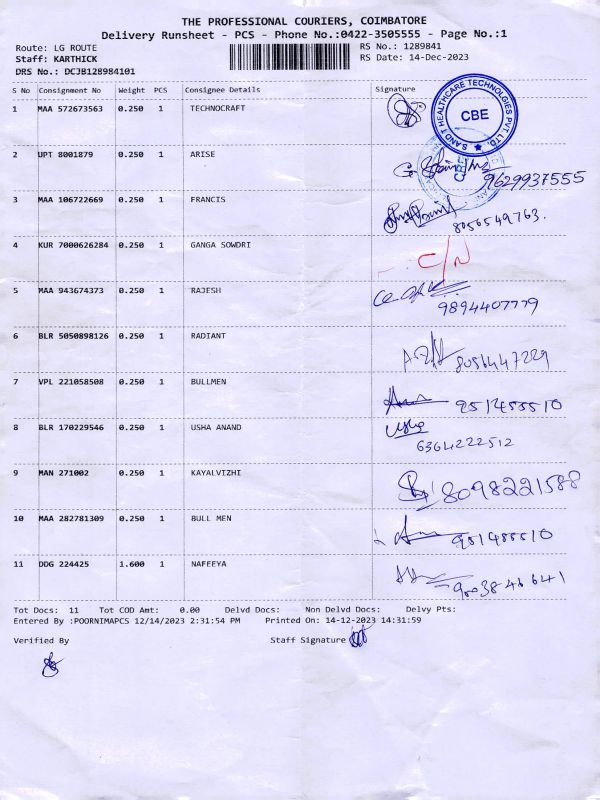 THE PROFESSIONAL COURIERS, COIMBATORE
Delivery Runsheet - PCS - Phone No.:0422-3505555 - Page No.:1
Route: LG ROUTE RS No.: 1289841
Staff: KARTHICK RS Date: 14-Dec-2023
DRS No.: DCJB128984101
S No Consignment No Weight PCS Consignee Details Signature
1 MAA 572673563 0.250 1 TECHNOCRAFT
SAND T HEALTHCARE TECHNOLGIES PVT. LTD. CBE
2 UPT 8001879 0.250 1 ARISE 9629937555
3 MAA 106722669 0.250 1 FRANCIS 8056549763.
4 KUR 7000626284 0.250 1 GANGA SOWDRI C/N
5 MAA 943674373 0.250 1 RAJESH 9894407779
6 BLR 5050898126 0.250 1 RADIANT 8056447229
7 VPL 221058508 0.250 1 BULLMEN
8 BLR 170229546 0.250 1 USHA ANAND Usha
6364222512
9 MAN 271002 0.250 1 KAYALVIZHI 8098221588
10 MAA 282781309 0.250 1 BULL MEN
11 DDG 224425 1.600 1 NAFEEYA 9003846641
Tot Docs: 11 Tot COD Amt: 0.00 Delvd Docs: Non Delvd Docs: Delvy Pts:
Entered By :POORNIMAPCS 12/14/2023 2:31:54 PM Printed On: 14-12-2023 14:31:59
Verified By Staff Signature